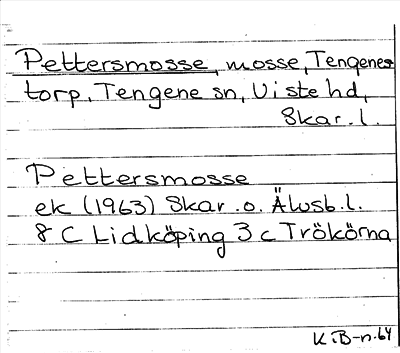 Pettersmosse, mosse, Tengenes
torp, Tengene sn, Viste hd,
Skar. l.
Pettersmosse
ek (1963) Skar. o. Älvsb. l.
8 C Lidköping 3 c Trökörna
KiB-n. 64